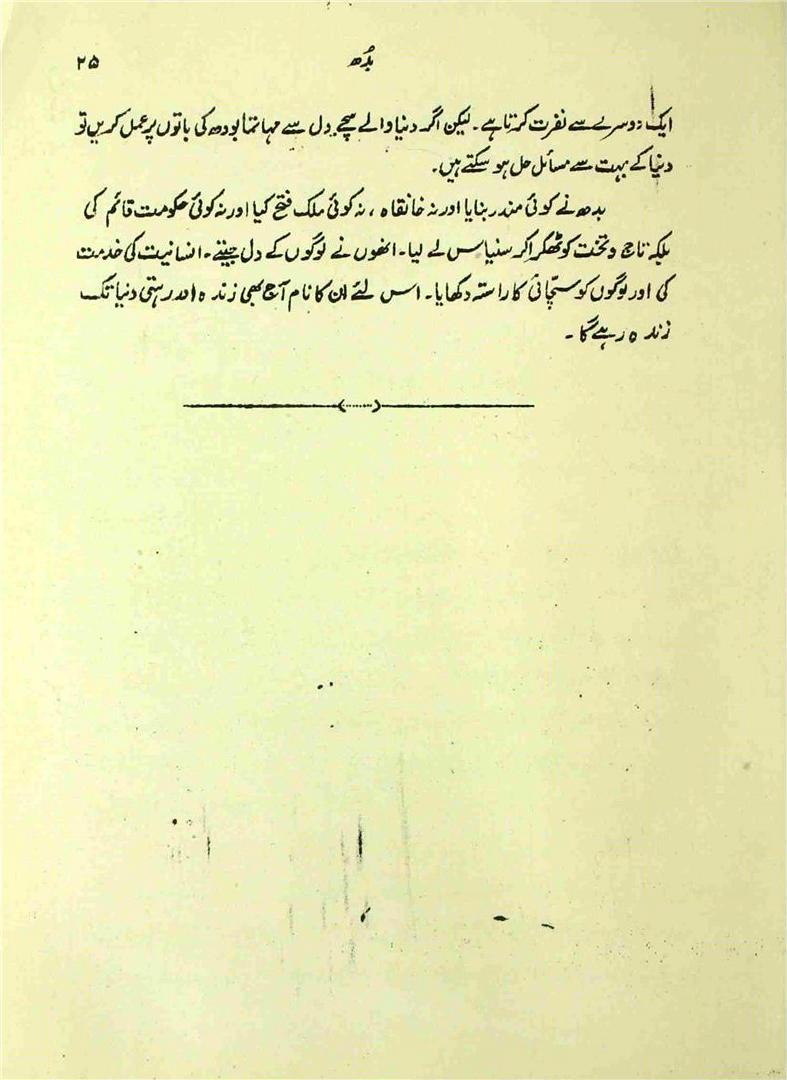 بُدھ ۲۵
ایک دوسرے سے نفرت کرتا ہے۔ لیکن اگر دنیا والے سچے دل سے مہاتما بودھ کی باتوں پر عمل کریں تو
دنیا کے بہت سے مسائل حل ہو سکتے ہیں۔
بدھ نے کوئی مندر بنایا اور نہ خانقاہ ، نہ کوئی ملک فتح کیا اور نہ کوئی حکومت قائم کی
بلکہ تاج و تخت کو ٹھکرا کر سنیاس لے لیا۔ انھوں نے لوگوں کے دل جیتے۔ انسانیت کی خدمت
کی اور لوگوں کو سچّائی کا راستہ دکھایا۔ اس لئے ان کا نام آج بھی زندہ اور رہتی دنیا تک
زندہ رہے گا۔